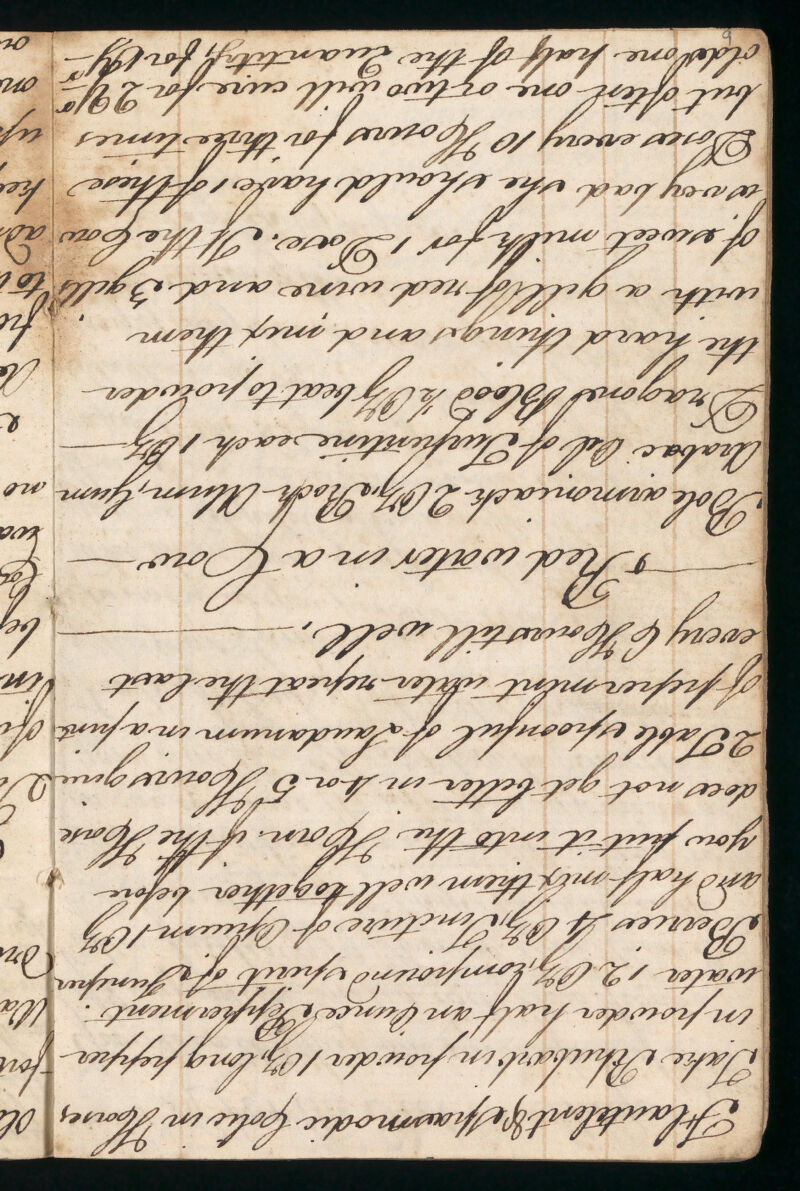 Flautulent & Spasmodic Colic in Horses
Take Rhubarb in powder 1 Oz, long pepper
in powder half an Ounce Pepperment
water 12 Oz, compound spirit of Juniper
Berries 4 Oz, Tincture of Opium 1 Oz
and half mix them well together before
you put it into the Horn if the Horse
does not get better in 4 or 5 Hours give
2 Table spoonful of Laudanum in a pint
of pepermint water repeat the last
every 6 Hours till well.
Red water in a Cow
Bole armoniack 2 Oz, Roch Alum, Gum
Arabac Oil of Turpentine each 1 Oz
Dragons Blood ½ Oz beat to powder
the hard things and mix them
with a gill of red wine and 3 gills
of sweet milk for 1 Dose. If the Cow
is very bad she should have 1 of these
Doses every 10 Hours for three times
but often one or two will cure for 2 Yr
olds one half of the Quantity, for 1 Yr
9